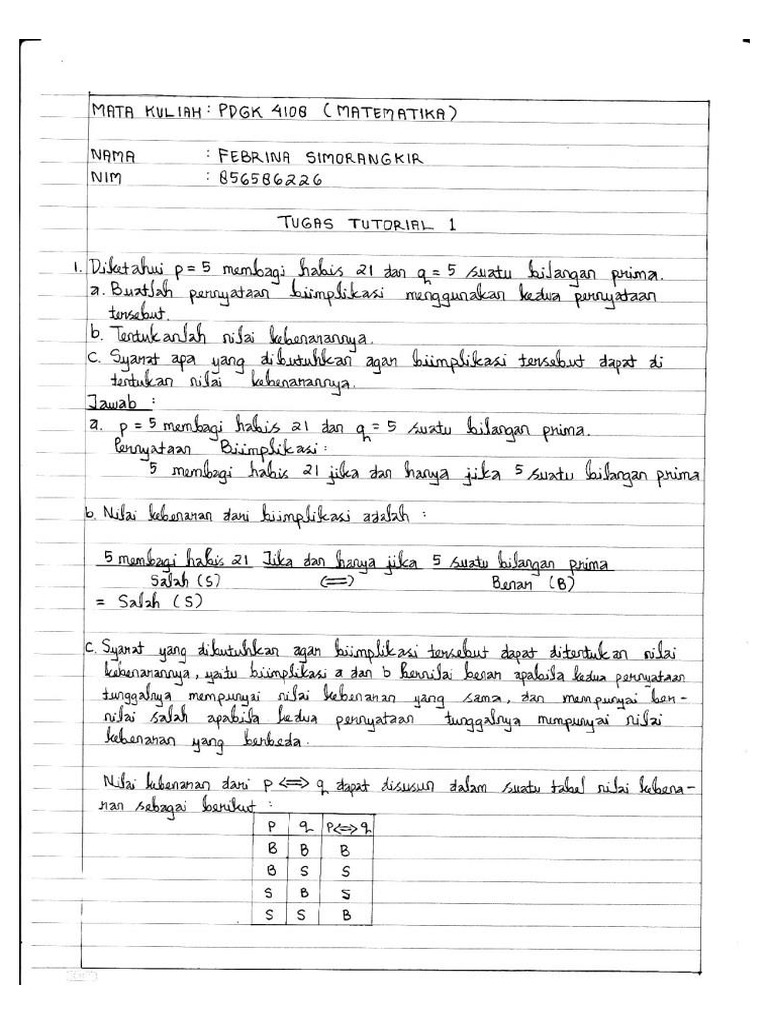 MATA KULIAH : PDGK 4108 (MATEMATIKA)
NAMA : FEBRINA SIMORANGKIR
NIM : 856586226
TUGAS TUTORIAL 1
1. Diketahui p = 5 membagi habis 21 dan q = 5 suatu bilangan prima.
a. Buatlah pernyataan biimplikasi menggunakan kedua pernyataan
tersebut.
b. Tentukanlah nilai kebenarannya.
c. Syarat apa yang dibutuhkan agar biimplikasi tersebut dapat di
tentukan nilai kebenarannya.
Jawab :
a. p = 5 membagi habis 21 dan q = 5 suatu bilangan prima.
Pernyataan Biimplikasi :
5 membagi habis 21 jika dan hanya jika 5 suatu bilangan prima
b. Nilai kebenaran dari biimplikasi adalah :
5 membagi habis 21 Jika dan hanya jika 5 suatu bilangan prima
Salah (S) (<=>) Benar (B)
= Salah (S)
c. Syarat yang dibutuhkan agar biimplikasi tersebut dapat ditentukan nilai
kebenarannya, yaitu biimplikasi a dan b bernilai benar apabila kedua pernyataan
tunggalnya mempunyai nilai kebenaran yang sama, dan mempunyai ber-
nilai salah apabila kedua pernyataan tunggalnya mempunyai nilai
kebenaran yang berbeda.
Nilai kebenaran dari p <=> q dapat disusun dalam suatu tabel nilai kebena-
ran sebagai berikut :
P q P<=>q
B B B
B S S
S B S
S S B